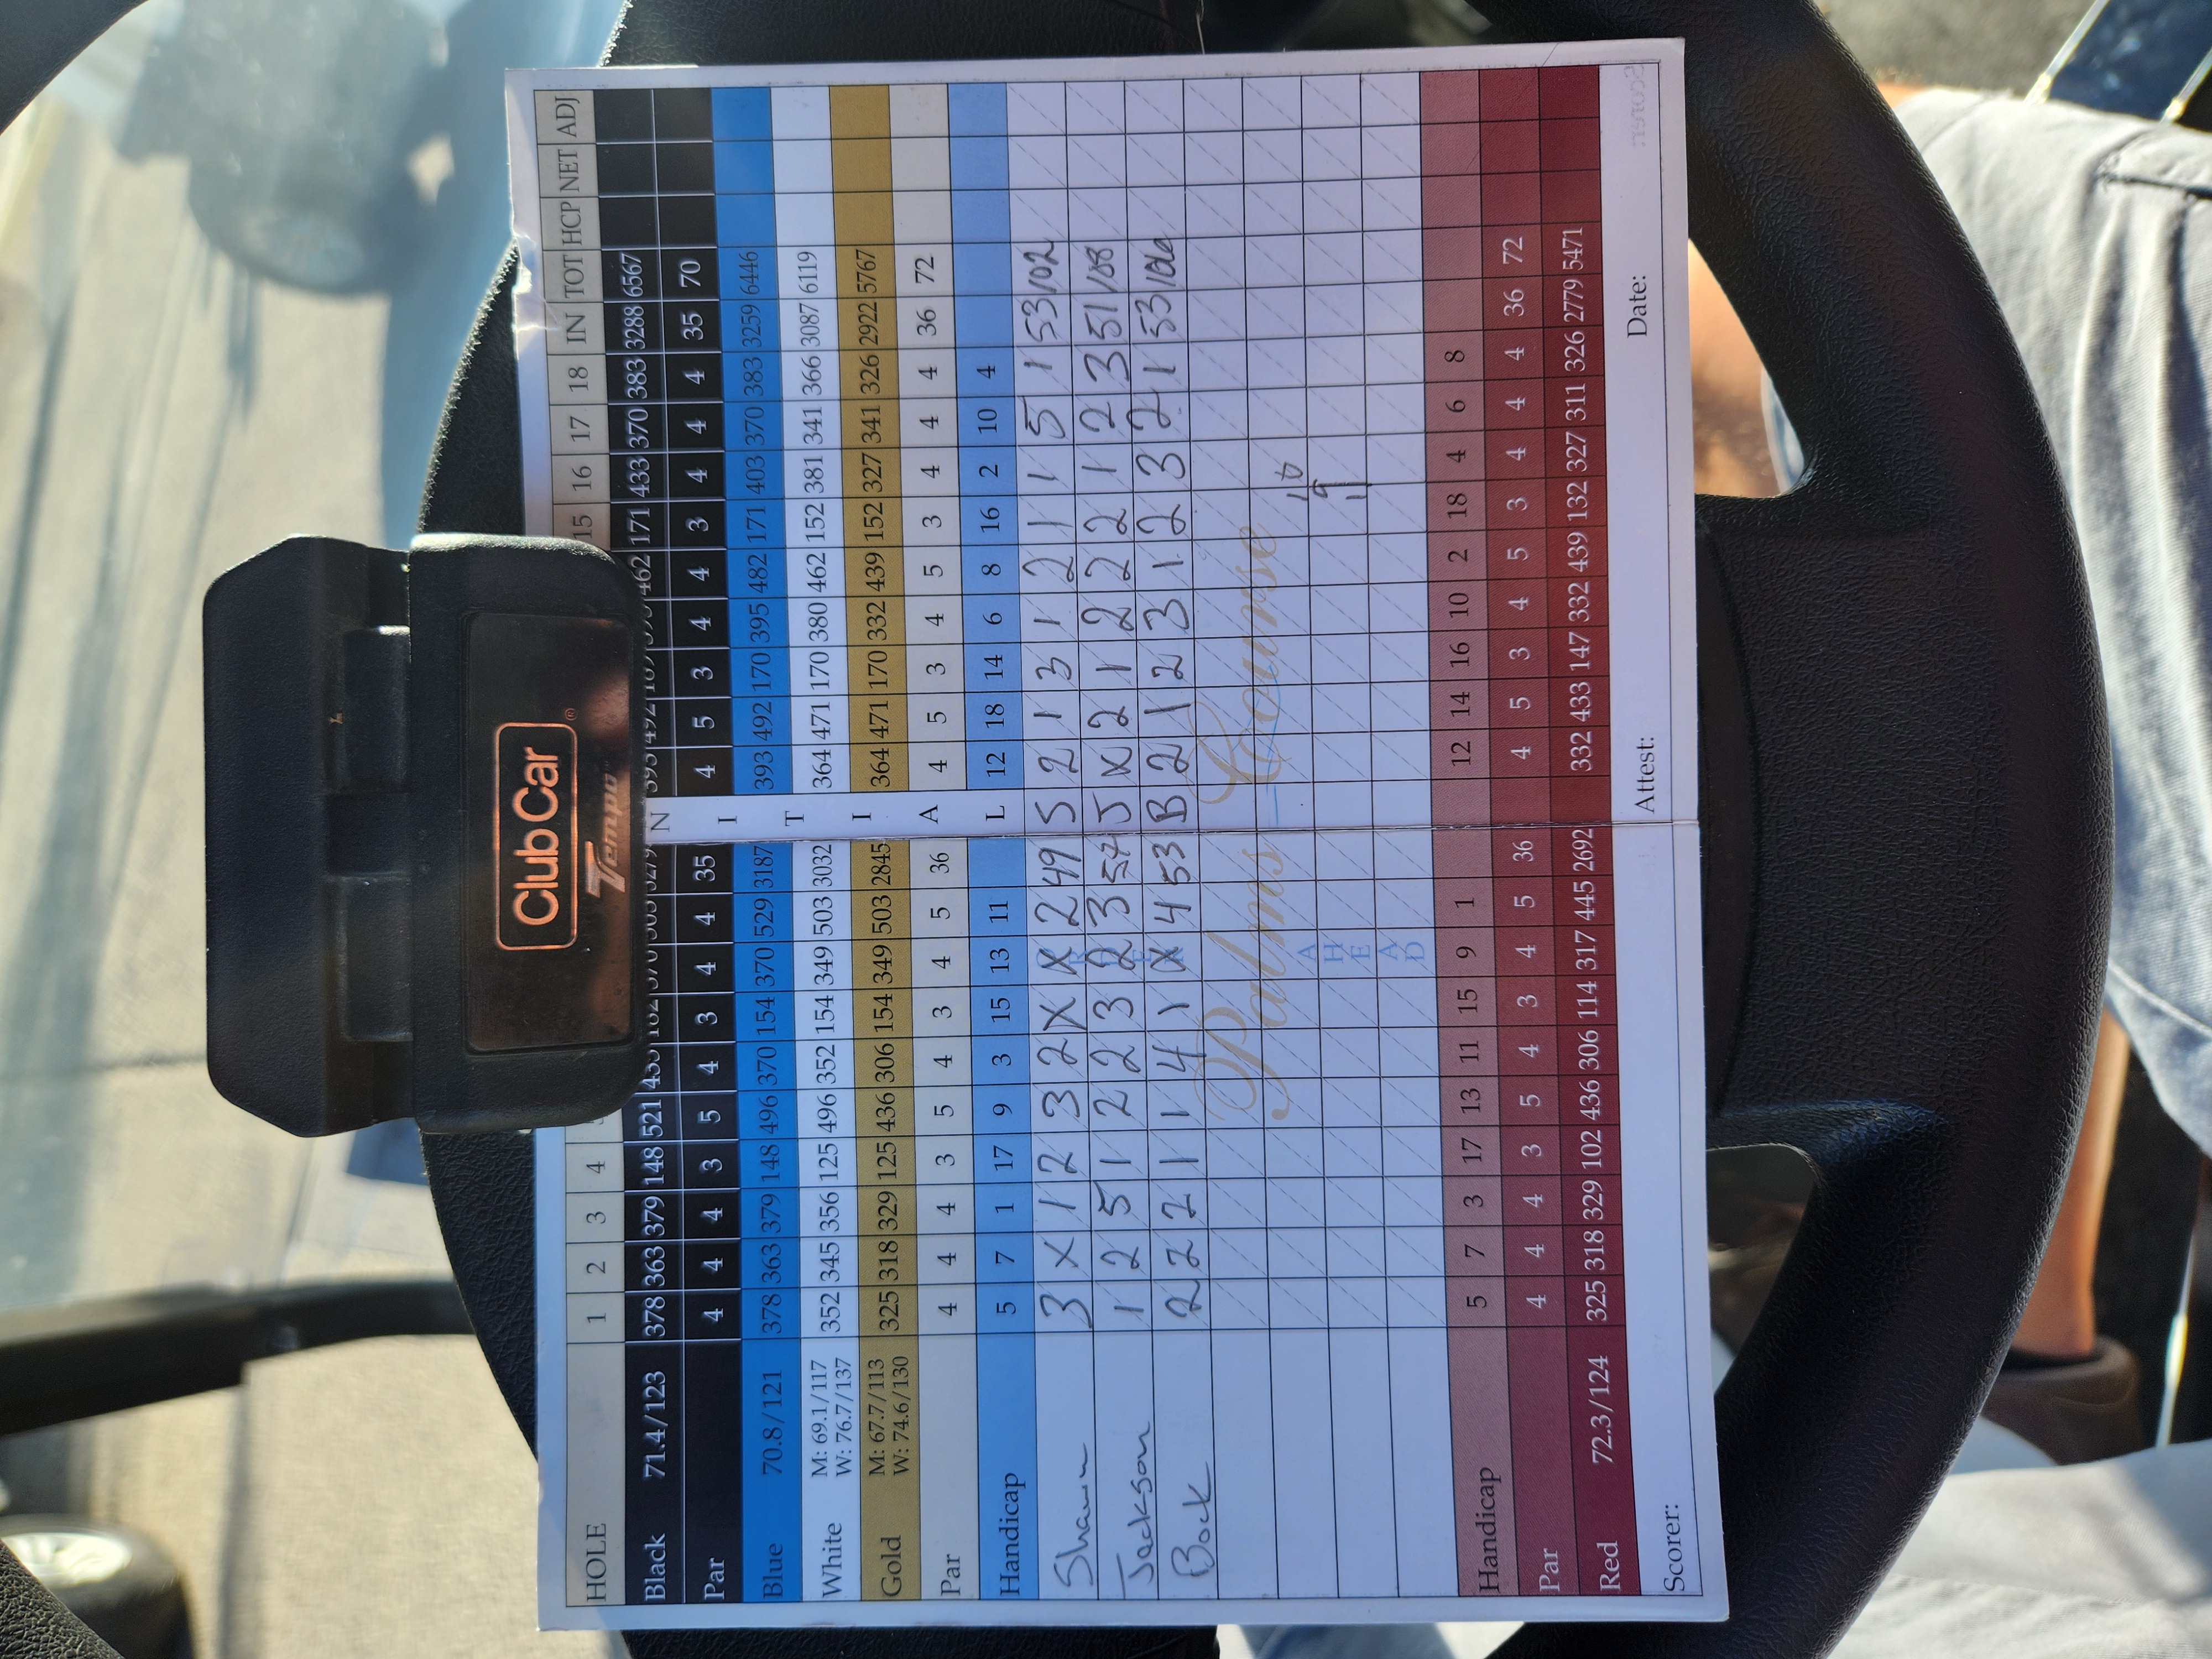 Club Car
Tempo
HOLE 1 2 3 4 15 16 17 18 IN TOT HCP NET ADJ
Black 71.4/123 378 363 379 148 521 462 171 433 370 383 3288 6567
Par 4 4 4 3 5 4 3 4 4 35 4 5 3 4 4 3 4 4 4 35 70
Blue 70.8/121 378 363 379 148 496 370 154 370 529 3187 393 492 170 395 482 171 403 370 383 3259 6446
White M: 69.1/117 W: 76.7/137 352 345 356 125 496 352 154 349 503 3032 364 471 170 380 462 152 381 341 366 3087 6119
Gold M: 67.7/113 W: 74.6/130 325 318 329 125 436 306 154 349 503 2845 364 471 170 332 439 152 327 341 326 2922 5767
Par 4 4 4 3 5 4 3 4 5 36 4 5 3 4 5 3 4 4 4 36 72
Handicap 5 7 1 17 9 3 15 13 11 12 18 14 6 8 16 2 10 4
INITIAL
Shawn 3 X 1 2 3 2 X X 2 49 S 2 1 3 1 2 1 1 5 1 53 102
Jackson 1 2 5 1 2 2 3 2 3 57 J X 2 1 2 2 2 1 2 3 51 108
Bock 2 2 2 1 1 4 1 X 4 53 B 2 1 2 3 1 2 3 2 1 53 106
Palms Course
10
9
11
AHEAD
Handicap 5 7 3 17 13 11 15 9 1 12 14 16 10 2 18 4 6 8
Par 4 4 4 3 5 4 3 4 5 36 4 5 3 4 5 3 4 4 4 36 72
Red 72.3/124 325 318 329 102 436 306 114 317 445 2692 332 433 147 332 439 132 327 311 326 2779 5471
Scorer: Attest: Date: